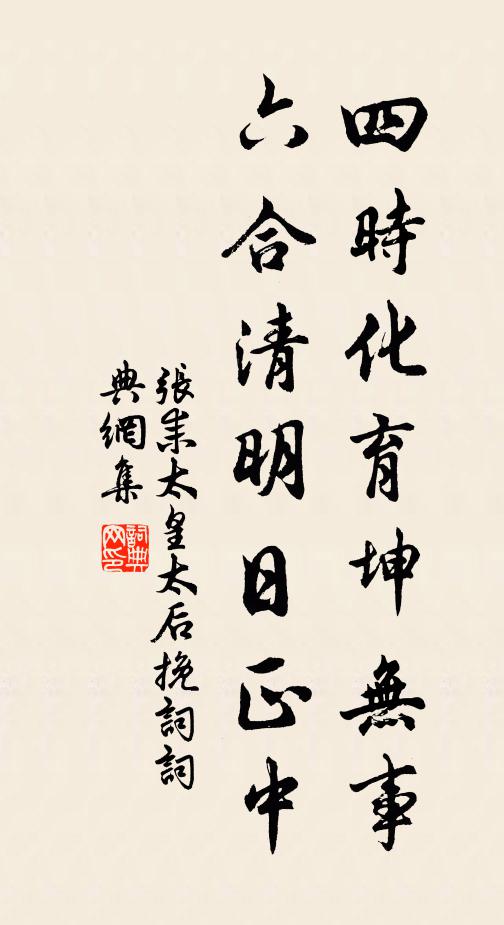 四時化育坤無事
六合清明日正中
張耒太皇太后挽詞詞
典網集
詞典
网印